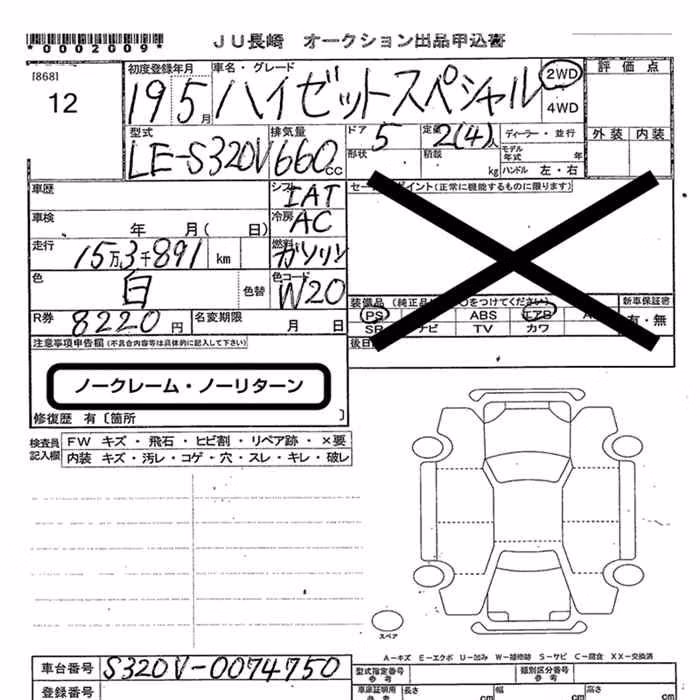 *0002009* JU長崎 オークション出品申込書
[868]
12
初度登録年月 車名・グレード 2WD 評価点
19 5月 ハイゼットスペシャル 4WD
型式 排気量 ドア 定員 ディーラー・並行 外装 内装
LE-S320V 660cc 5 2(4)人 モデル年式 年
形状 積載 kg ハンドル 左・右
車歴 シフト IAT セールスポイント(正常に機能するものに限ります)
車検 年 月( 日) 冷房 AC
走行 15万3千891 km 燃料 ガソリン
色 白 色替 色コード W20
装備品 (純正品に○をつけてください) 新車保証書
PS ABS エアB 有・無
R券 8220円 名変期限 月 日 SR ナビ TV カワ
注意事項申告欄(不具合内容等は具体的に記入して下さい) 後日
ノークレーム・ノーリターン
修復歴 有〔箇所 〕
検査員 FW キズ・飛石・ヒビ割・リペア跡・×要
記入欄 内装 キズ・汚レ・コゲ・穴・スレ・キレ・破レ
スペア
A-キズ E-エクボ U-凹み W-補修跡 S-サビ C-腐食 XX-交換済
車台番号 S320V-0074750 型式指定番号 参考 類別区分番号 参考
登録番号 車庫証明用 参考 長さ cm 幅 cm 高さ cm